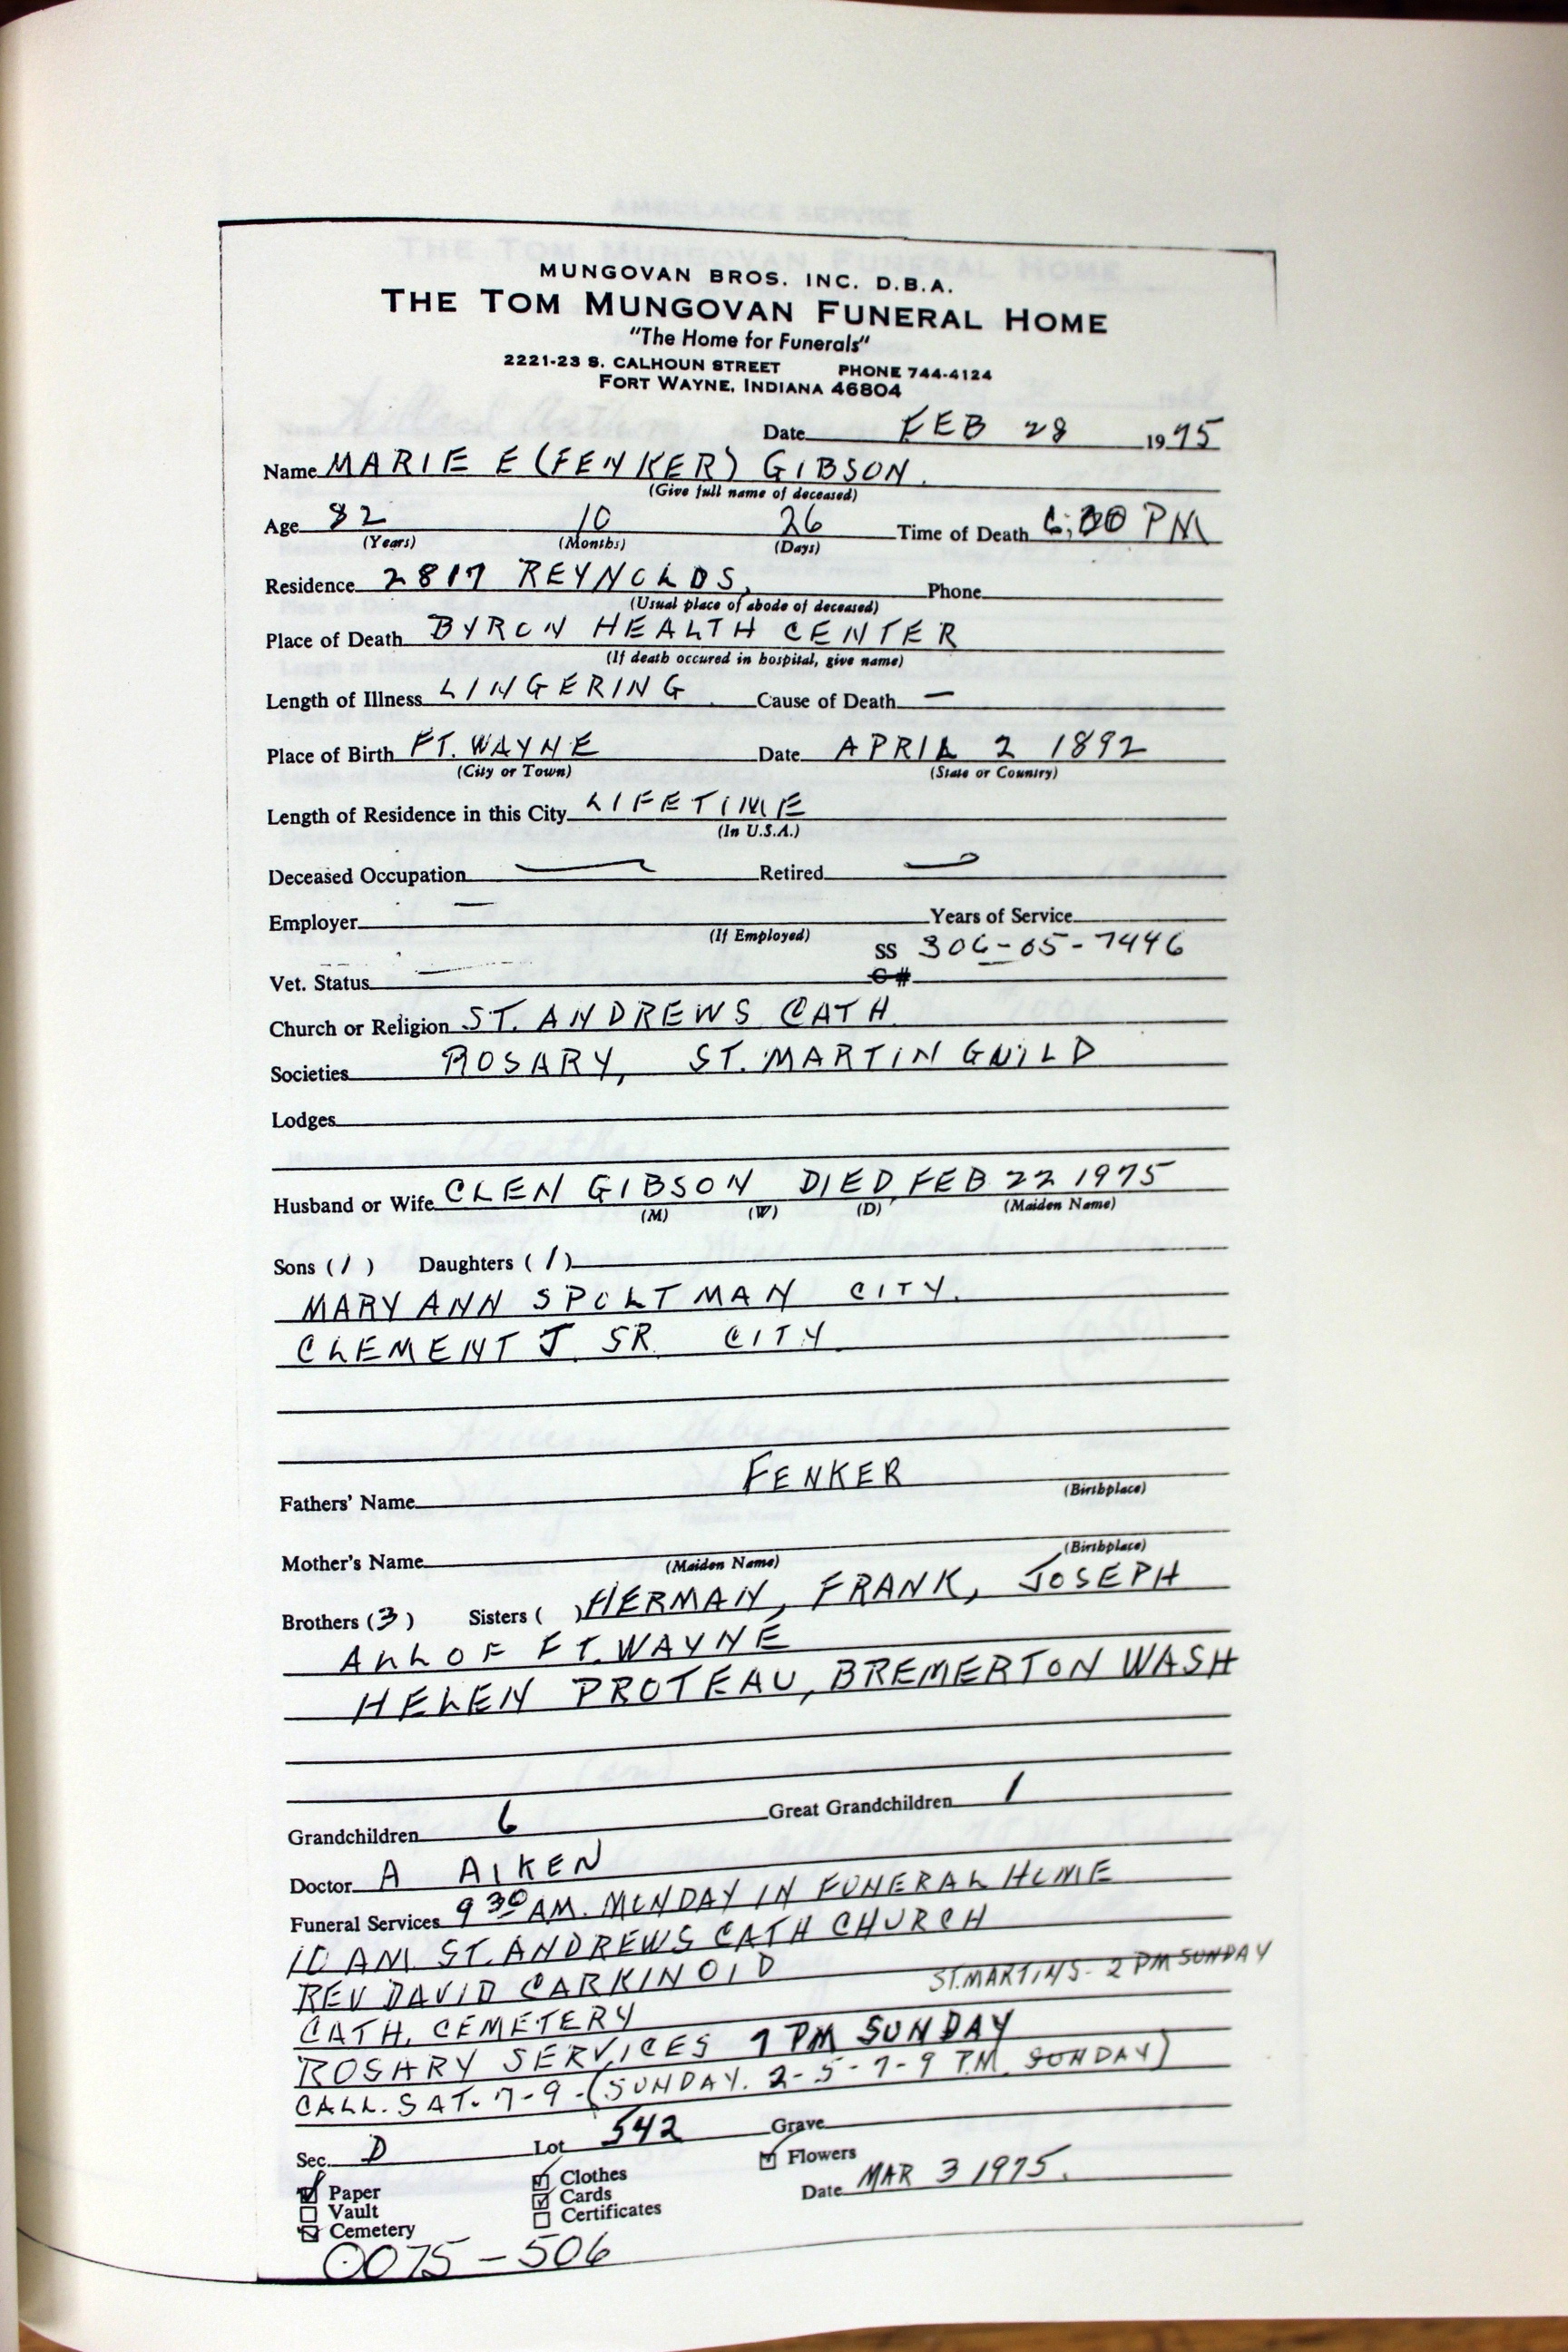 MUNGOVAN BROS. INC. D.B.A.
THE TOM MUNGOVAN FUNERAL HOME
"The Home for Funerals"
2221-23 S. CALHOUN STREET PHONE 744-4124
FORT WAYNE, INDIANA 46804
Date FEB 28 1975
Name MARIE E (FENKER) GIBSON
(Give full name of deceased)
Age 82 10 26 Time of Death PM
(Years) (Months) (Days)
Residence 2817 REYNOLDS, Phone
(Usual place of abode of deceased)
Place of Death BYRON HEALTH CENTER
(If death occured in hospital, give name)
Length of Illness LINGERING Cause of Death —
Place of Birth FT. WAYNE Date APRIL 2 1892
(City or Town) (State or Country)
Length of Residence in this City LIFETIME
(In U.S.A.)
Deceased Occupation — Retired —
Employer — Years of Service
(If Employed)
SS 306-05-7446
Vet. Status — C#
Church or Religion ST. ANDREWS CATH
Societies ROSARY, ST. MARTIN GUILD
Lodges
Husband or Wife CLEN GIBSON DIED FEB 22 1975
(M) (W) (D) (Maiden Name)
Sons (1) Daughters (1)
MARY ANN SPOLTMAN CITY.
CLEMENT J. SR. CITY
Fathers' Name FENKER
(Birthplace)
Mother's Name
(Maiden Name) (Birthplace)
Brothers (3) Sisters ( ) HERMAN, FRANK, JOSEPH
ALL OF FT. WAYNE
HELEN PROTEAU, BREMERTON WASH
Grandchildren 6 Great Grandchildren 1
Doctor A AIKEN
Funeral Services 9 30 AM. MONDAY IN FUNERAL HOME
10 AM. ST. ANDREWS CATH CHURCH
REV DAVID CARKINOID ST. MARTINS - 2 PM SUNDAY
CATH. CEMETERY
ROSARY SERVICES 7 PM SUNDAY
CALL. SAT. 7-9 - (SUNDAY. 2-5-7-9 P.M. SUNDAY)
Sec. D Lot 542 Grave
Paper Clothes Flowers
Vault Cards Date MAR 3 1975.
Cemetery Certificates
0075-506